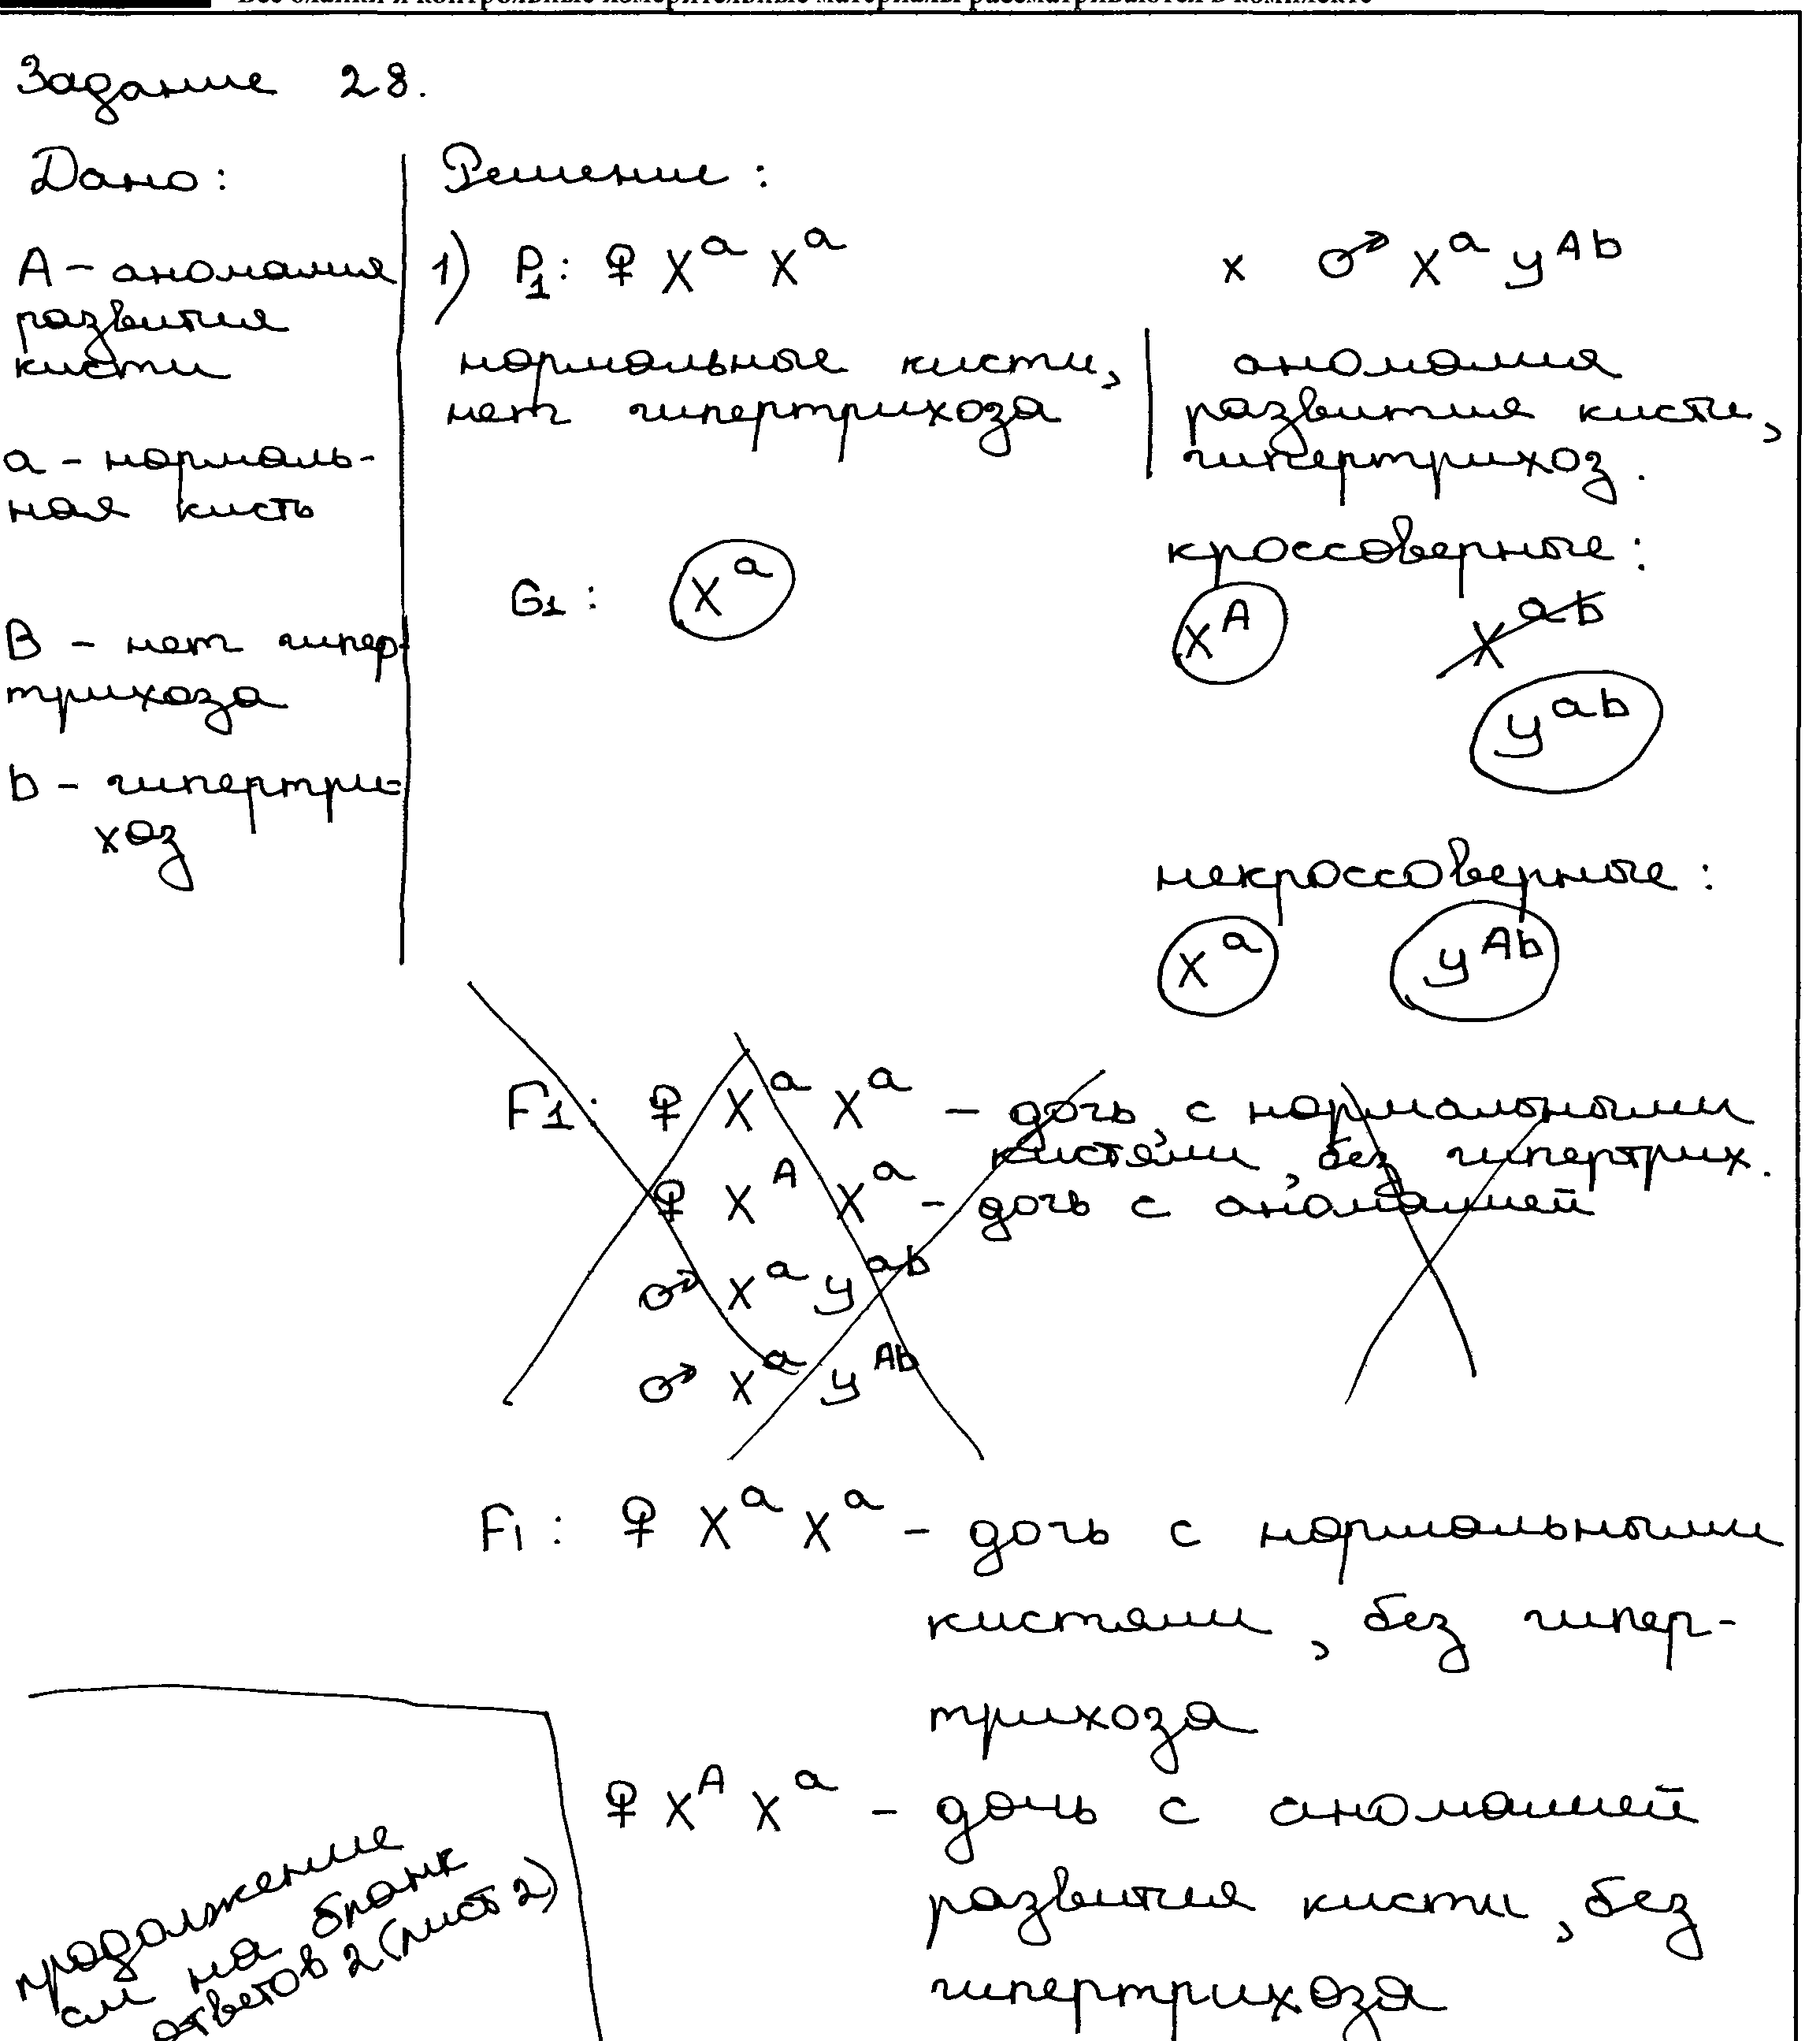 Все бланки и контрольные измерительные материалы рассматриваются в комплекте
Задание 28.
Дано:
А - аномалия
развития
кисти
а - нормаль-
ная кисть
В - нет гипер-
трихоза
b - гипертри-
хоз
Решение:
1) P1: ♀ X^a X^a x ♂ X^a y^Ab
нормальные кисти, | аномалия
нет гипертрихоза | развития кисти,
гипертрихоз.
кроссоверные:
G1: X^a X^A X^ab
y^ab
некроссоверные:
X^a y^Ab
F1: ♀ X^a X^a - дочь с нормальными
кистями, без гипертрих.
♀ X^A X^a - дочь с аномалией
♂ X^a y^ab
♂ X^a y^Ab
F1: ♀ X^a X^a - дочь с нормальными
кистями, без гипер-
трихоза
♀ X^A X^a - дочь с аномалией
развития кисти, без
гипертрихоза
продолжение
см на бланк
ответов 2 (лист 2)